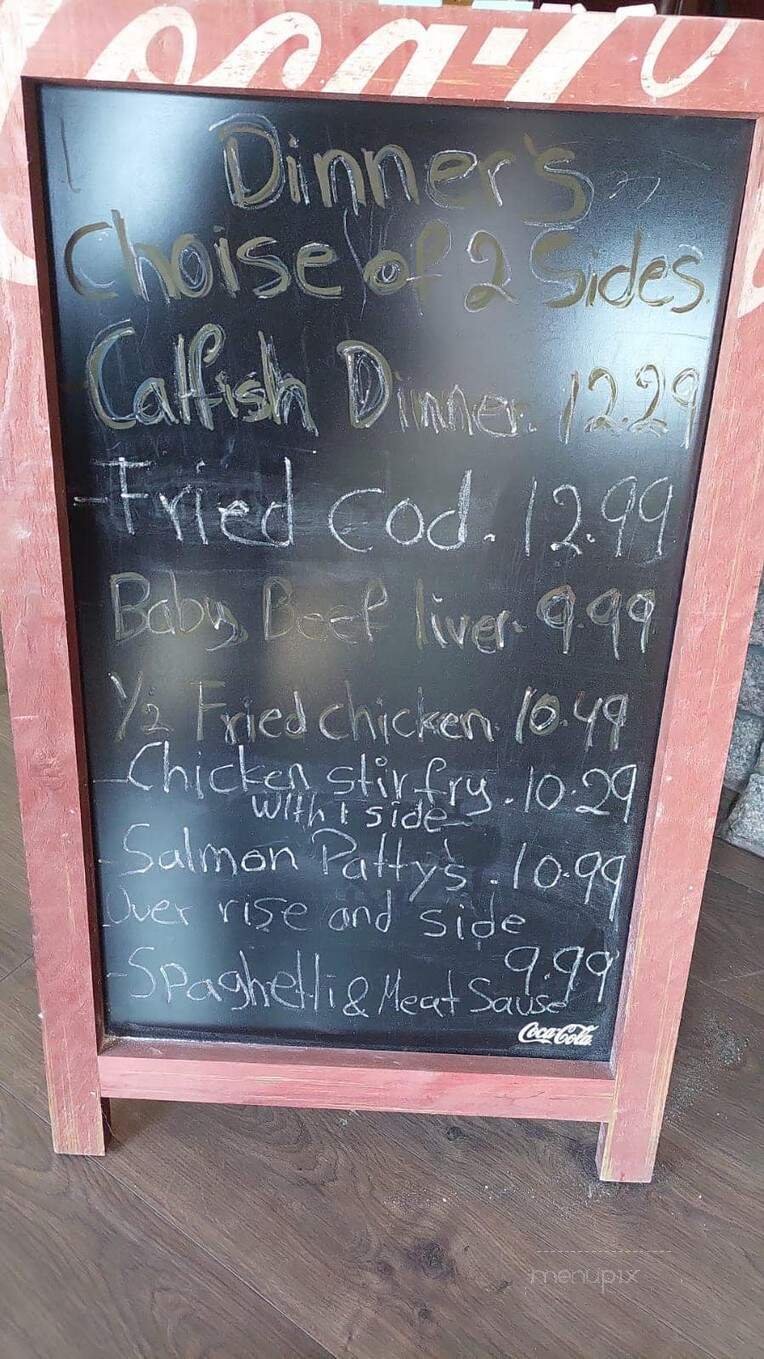 Coca-Co
Dinner's
Choise of 2 Sides.
Catfish Dinner. 12.29
-Fried Cod. 12.99
Baby Beef liver. 9.99
1/2 Fried chicken. 10.49
-Chicken stir fry. 10.29
with 1 side
-Salmon Patty's. 10.99
Over rise and side
9.99
-Spaghetti & Meat Sause
Coca-Cola
menupix